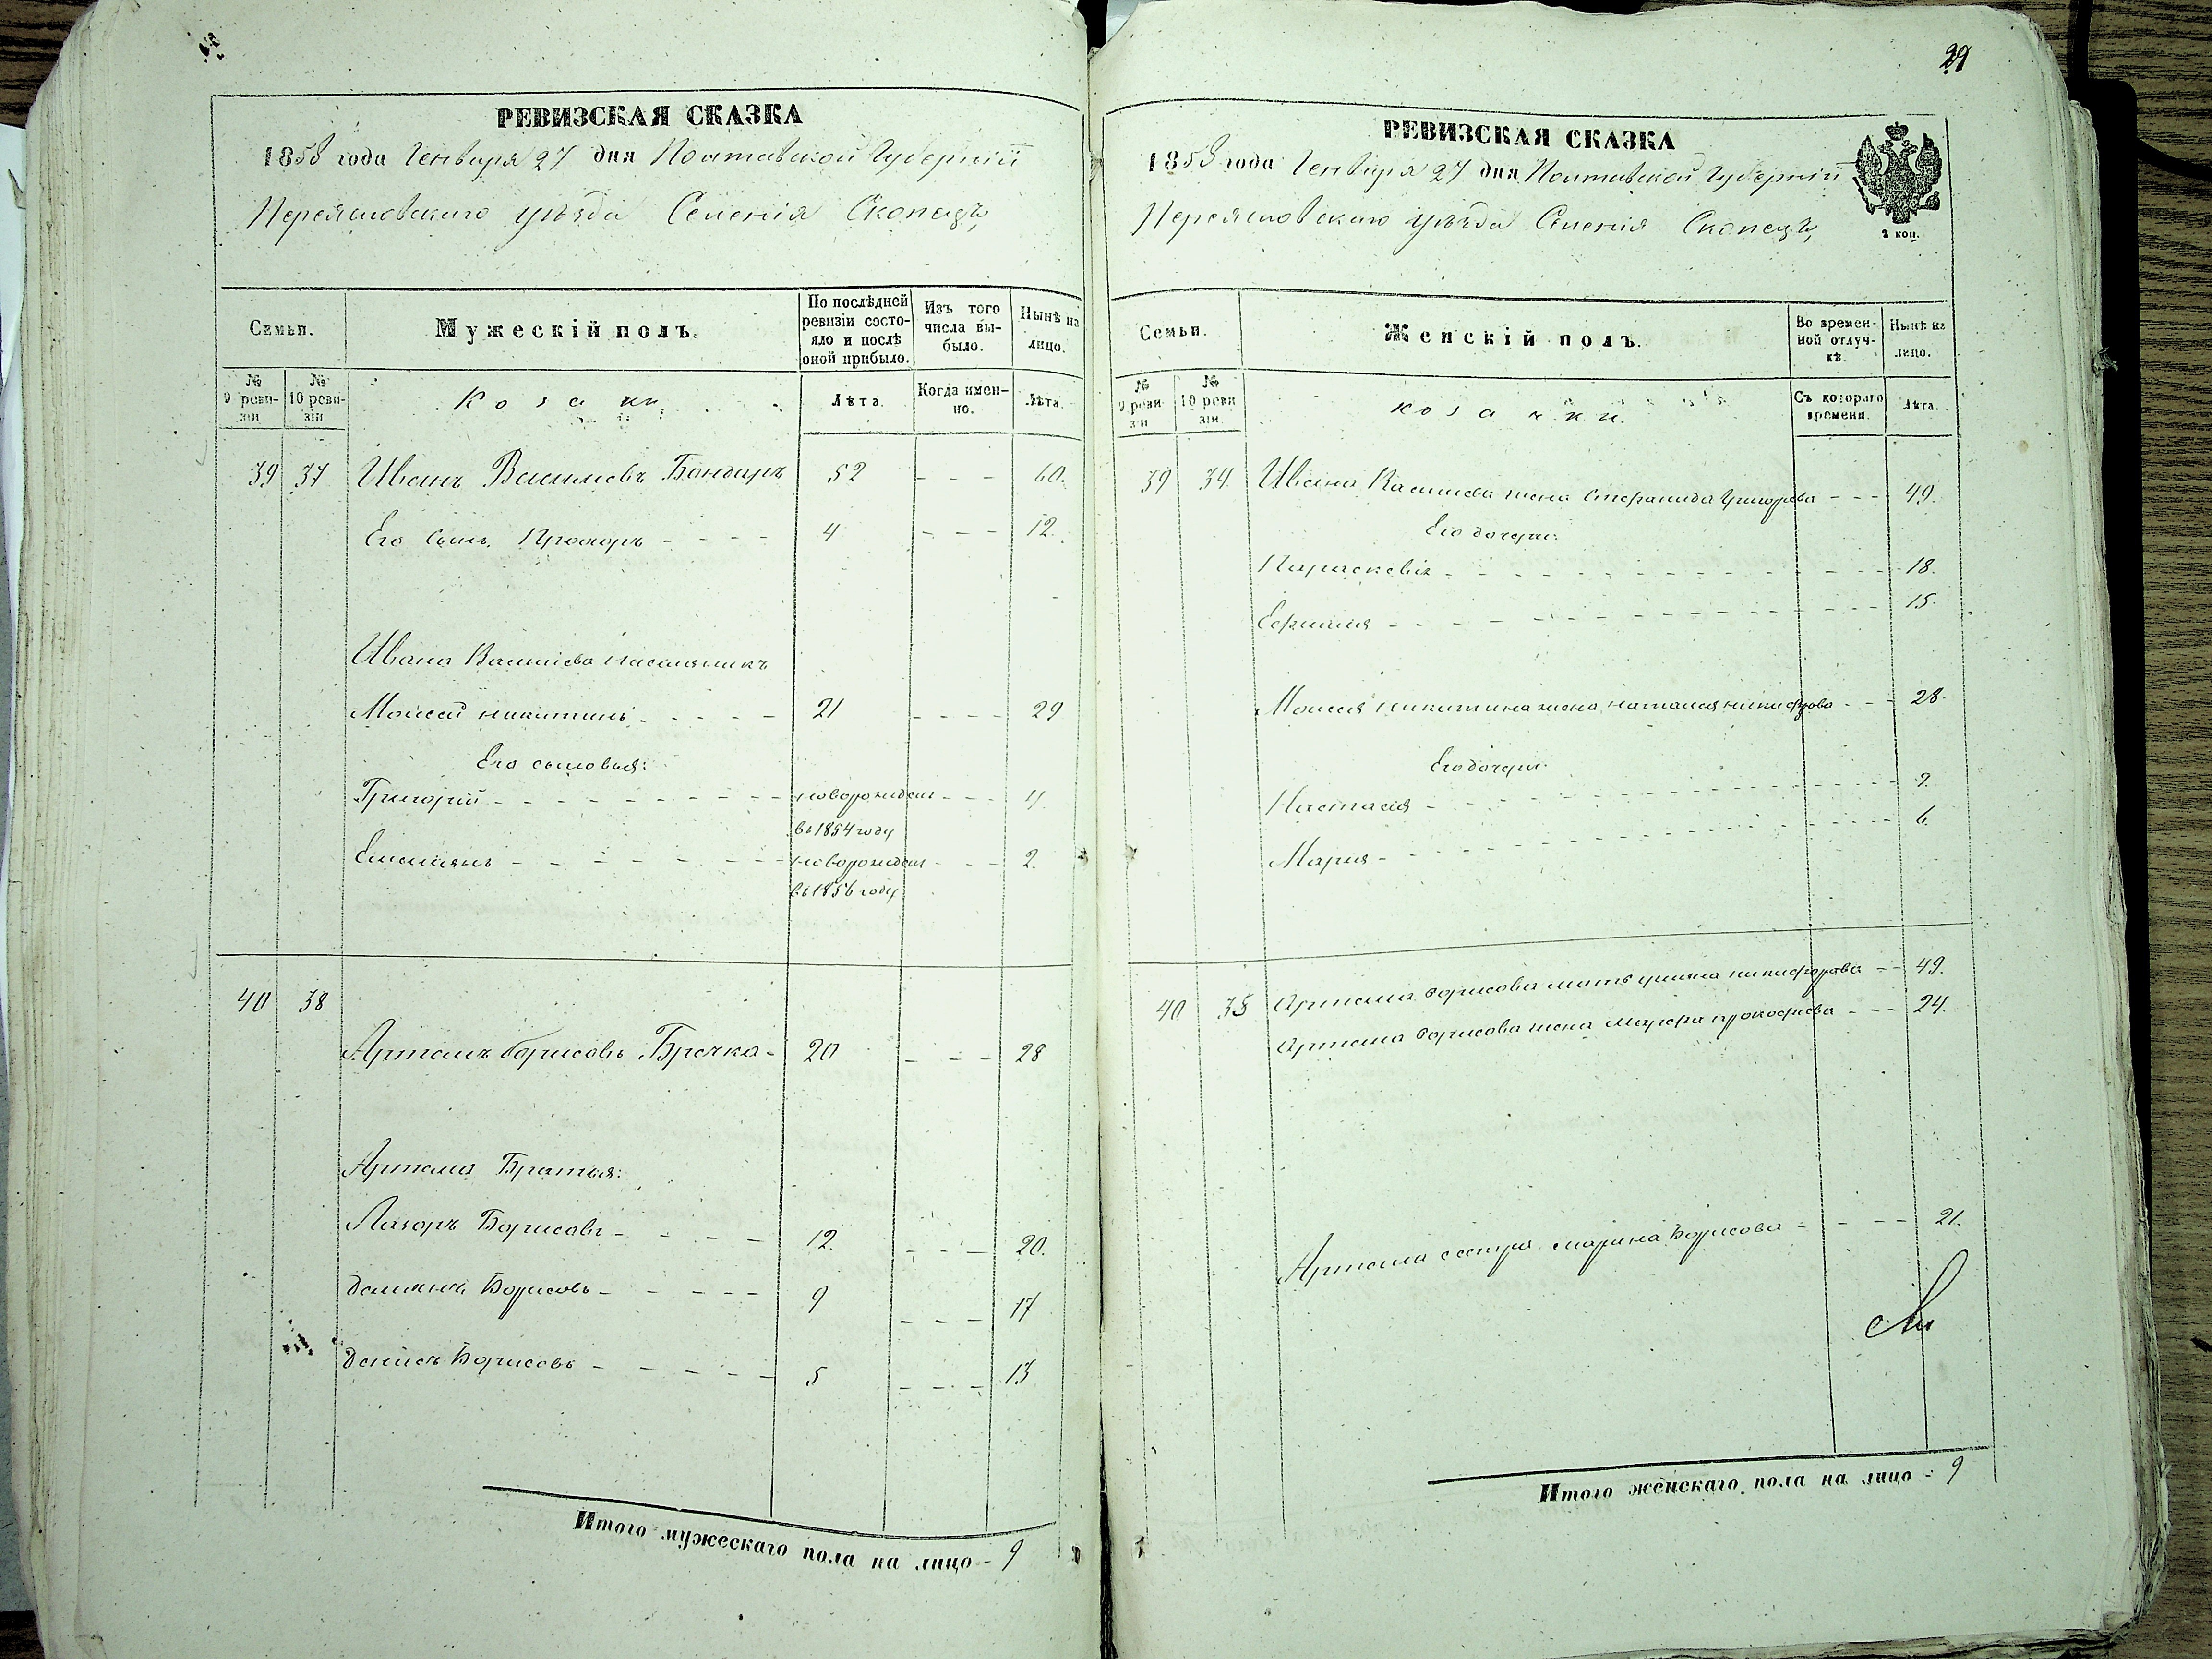 39
РЕВИЗСКАЯ СКАЗКА
1858 года Генваря 27 дня Полтавской Губерніи
Переяславскаго уѣзда Селенія Скопецъ,
Семьи.
Мужескій полъ.
По послѣдней ревизіи состояло и послѣ оной прибыло.
Изъ того числа выбыло.
Нынѣ на лицо.
№ 9 ревизіи
№ 10 ревизіи
Козаки
Лѣта.
Когда именно.
Лѣта.
39 37 Иванъ Васильевъ Бондарь 52 - - - 60.
Его сынъ Прохоръ - - - - 4 - - - 12.
Ивана Васильева племянникъ
Моисей никитинъ - - - - - 21 - - - - 29
Его сыновья:
Григорій - - - - - - - - - новорожден - - - 4
въ 1854 году
Емельянъ - - - - - - - - новорожден - - - 2.
въ 1856 году
40 38
Артемъ борисовъ Бречка - 20 - - - 28
Артема Братья:
Лазоръ Борисовъ - - - - - 12. - - - 20.
Демьянъ Борисовъ - - - - - 9 - - - 17
Денисъ Борисовъ - - - - - 5 - - - 13
Итого мужескаго пола на лицо - 9
РЕВИЗСКАЯ СКАЗКА
1858 года Генваря 27 дня Полтавской Губерніи
Переяславскаго уѣзда Селенія Скопецъ,
2 коп.
Семьи.
Женскій полъ.
Во временной отлучкѣ.
Нынѣ на лицо.
№ 9 ревизіи
№ 10 ревизіи
козачки.
Съ котораго времени.
Лѣта.
39 34. Ивана Васильева жена Степанида Григорьева - - - 49.
Его дочери:
Параскевія - - - - - - - - - - - - 18.
Евфимия - - - - - - - - - - - - 15.
Моисея никитина жена наталія никифорова - - - 28.
Его дочери:
Настасія - - - - - - - - - - - - 9.
Мария - - - - - - - - - - - - 6.
40 35 Артема борисова мать ульяна никифорова - - 49.
Артема борисова жена марфа прокофьева - - - 24.
Артема сестра марина Борисова - - - - - 21.
Итого женскаго пола на лицо - 9